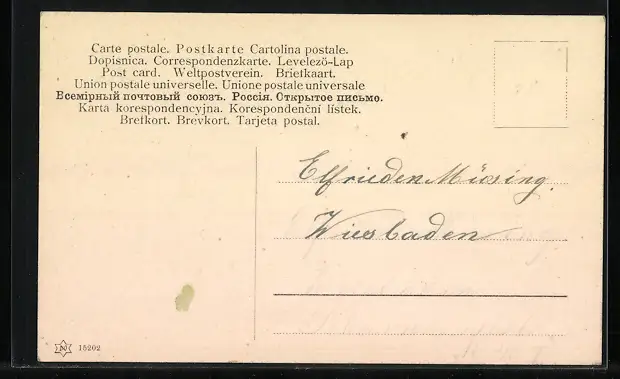 Carte postale. Postkarte Cartolina postale.
Dopisnica. Correspondenzkarte. Levelező-Lap
Post card. Weltpostverein. Briefkaart.
Union postale universelle. Unione postale universale
Всемірный почтовый союзъ. Россія. Открытое письмо.
Karta korespondencyjna. Korespondenční lístek.
Brefkort. Brevkort. Tarjeta postal.
Elfrieden Müsing.
Wiesbaden
15202